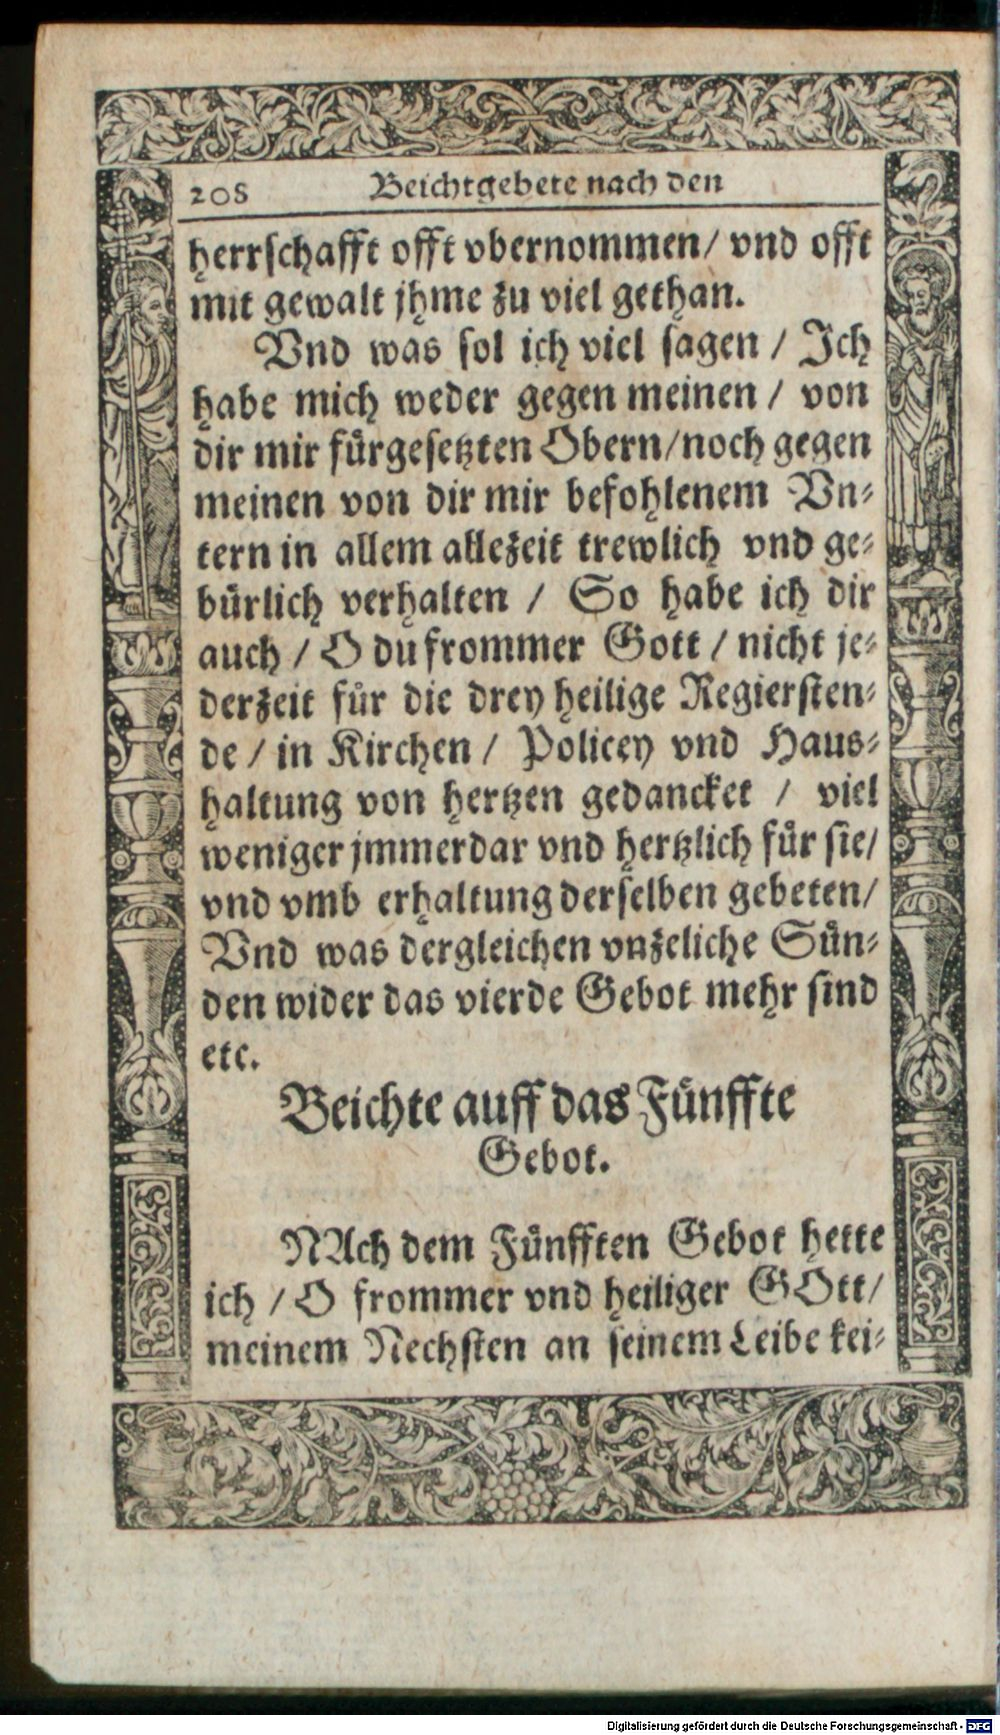 208 Beichtgebete nach den
herrschafft offt vbernommen/ vnd offt
mit gewalt jhme zu viel gethan.
Vnd was sol ich viel sagen / Ich
habe mich weder gegen meinen / von
dir mir fürgesetzten Obern/noch gegen
meinen von dir mir befohlenem Vn⸗
tern in allem allezeit trewlich vnd ge⸗
bürlich verhalten / So habe ich dir
auch / O du frommer Gott / nicht je⸗
derzeit für die drey heilige Regiersten⸗
de / in Kirchen / Policey vnd Haus⸗
haltung von hertzen gedancket / viel
weniger jmmerdar vnd hertzlich für sie/
vnd vmb erhaltung derselben gebeten/
Vnd was dergleichen vnzeliche Sün⸗
den wider das vierde Gebot mehr sind
etc.
Beichte auff das Fünffte
Gebot.
NAch dem Fünfften Gebot hette
ich / O frommer vnd heiliger GOtt/
meinem Nechsten an seinem Leibe kei⸗
Digitalisierung gefördert durch die Deutsche Forschungsgemeinschaft - DFG